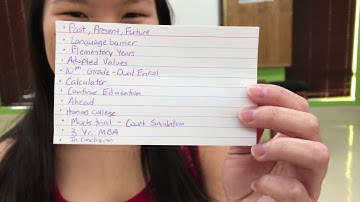 · Past, Present, Future
· Language barrier
· Elementary Years
· Adopted Values
· 10th Grade - Dual Enroll
· Calculator
· Continue Education
· Ahead
· Honors College
· Mock trial - Court Simulation
· 3 Yr. MBA
· In Conclusion